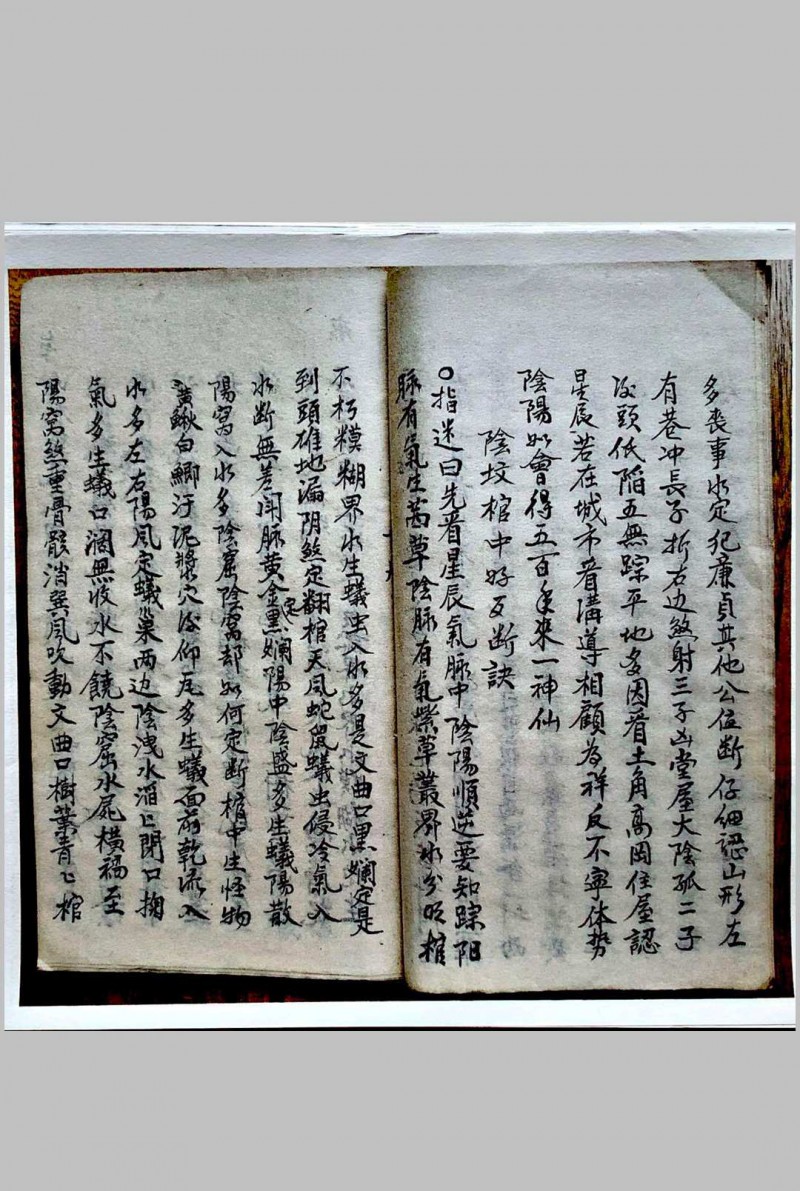 多喪事水定犯廉貞其他公位断仔細認山形左
有巷冲長子折右边煞射三子凶堂屋大陰孤二子
後頭低陷五無踪平地多因看土角高岡住屋認
星辰若在城市看溝導相顧為祥反不寧体势
陰陽如會得五百年來一神仙
陰坟棺中好歹断訣
〇指迷曰先看星辰氣脉中陰陽順逆要知踪阳
脉有氣生茜草陰脉有氣紫草叢界水分明棺
不朽糢糊界水生蟻虫入水多是文曲口黑爛定是
到頭雄地漏阴煞定翻棺天風蛇鼠蟻虫侵冷氣入
水断無差闭脉黄金定黑爛陽中陰盛多生蟻陽散
陽窝入水多陰窟陰窝却如何定断棺中生怪物
黄鰍白鯽汙泥漿穴後仰瓦多生蟻面前乾流入
水多左右陽风定蟻巢两边陰洩水滔〻閉口掬
氣多生蟻口濶無收水不饒陰窟水屍橫禍至
陽窩煞重骨骸消巽风吹動文曲口樹葉青〻棺